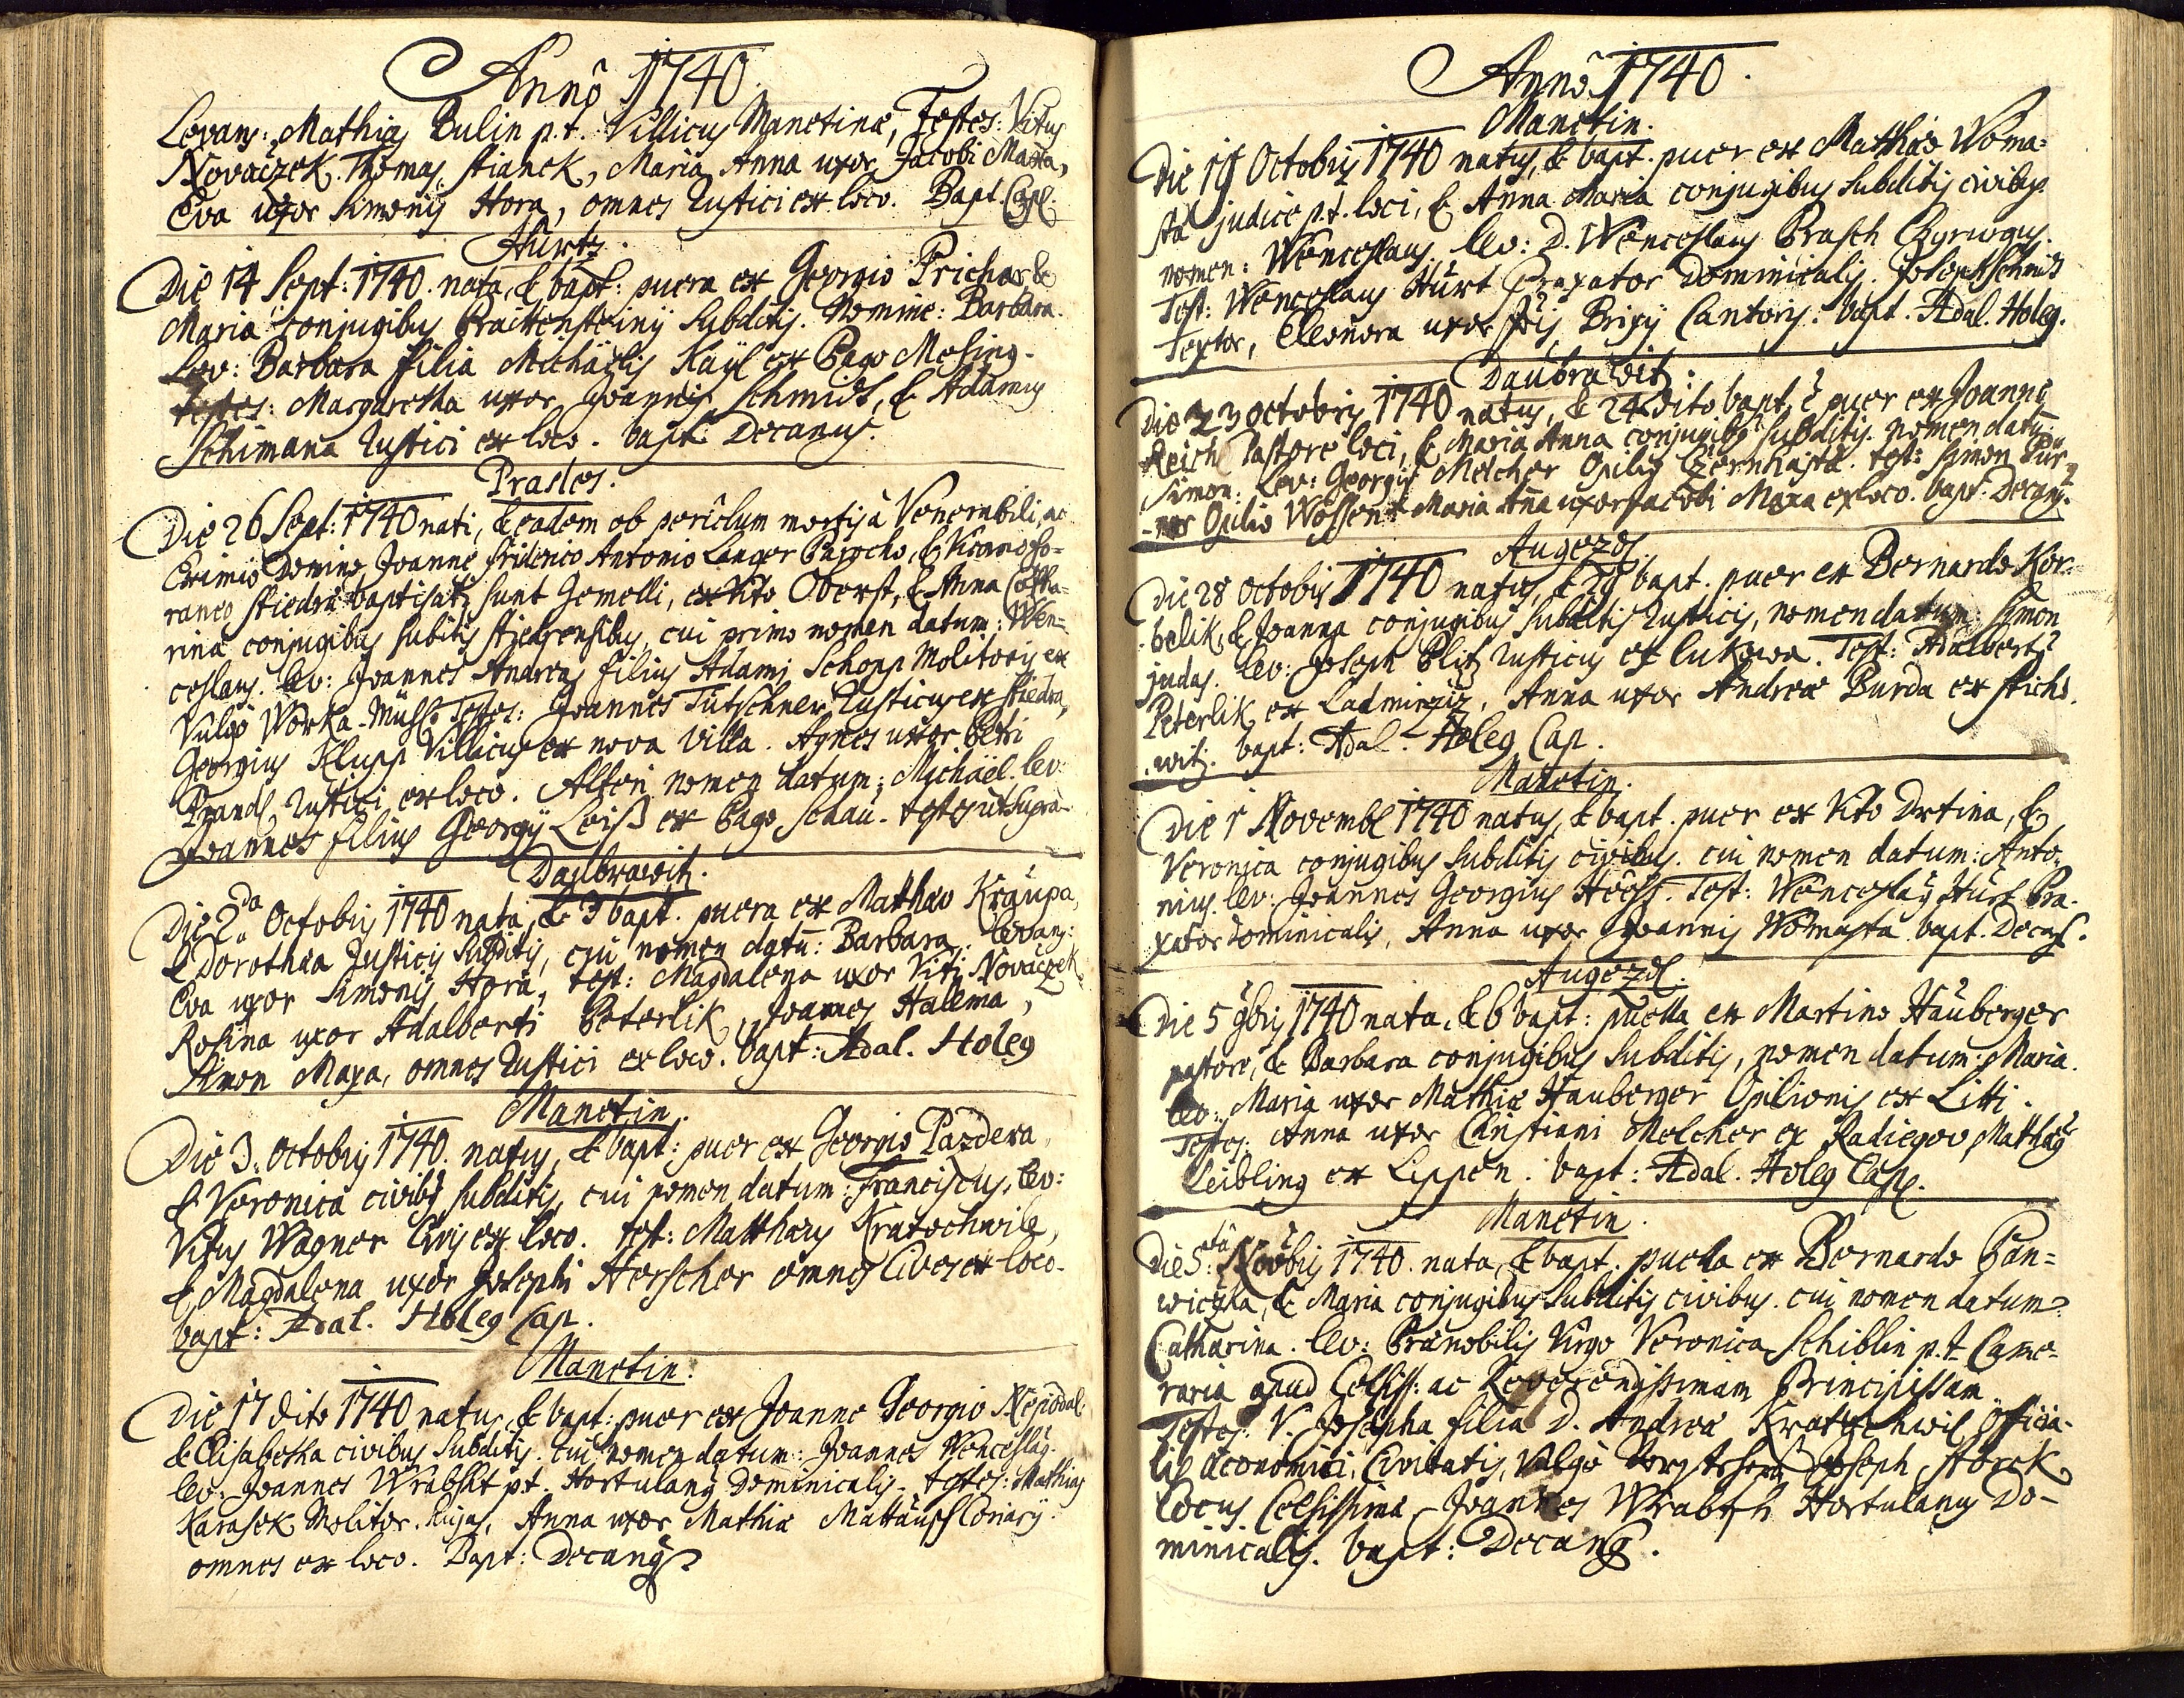 Anno 1740
Levans: Mathias Bulin p.t. Villicus Manetinae, Testes: Vitus
Novaczek. Thomas Stianek, Maria Anna uxor Jacobi Maxa,
Eva uxor Simonis Hora, omnes Rustici ex loco. Bapt. Capl.
Hurtz.
Die 14 Sept: 1740. nata, & bapt: puera ex Georgio Prichar, &
Maria conjugibus Braittensteinij Subditis. Nomine: Barbara.
Lev: Barbara filia Michaëlis Kayl ex Pago Mesing.
testes: Margaretha uxor Joannis Schmidt, & Adamus
Schimana Rustici ex loco. bapt: Decanus.
Prastes.
Die 26 Sept: 1740 nati, & eadem ob periclum mortis à Venerabili, ac
Eximio Domino Joanne Friderico Antonio Langer Parocho, & Vicario fo-
raneo Stiedra baptisati sunt Gemelli, ex Vito Oberst, & Anna Catha-
rina conjugibus subitis Stiedrensibus, cui primo nomen datum: Wen-
ceslaus. lev: Joannes Andreas filius Adami Schopp Molitoris ex
Vulgò Worka-Mühl. Testes: Joannes Tutschner Rusticus ex Stiedra,
Georgius Klupp Villicus ex nova Villa. Agnes uxor Petri
Prandl, Rustici ex loco. Alteri nomen datum: Michaël. lev:
Joannes filius Georgij Leiß ex Pago Schau. testes ut supra
Daubrawitz.
Die 2da Octobris 1740 nata, & 3 bapt. puera ex Mathaeo Kraupa,
& Dorothea Rusticis Subditis, cui nomen datū: Barbara. levans:
Eva uxor Simonis Hora, test: Magdalena uxor Viti Novaczek
Rosina uxor Adalberti Peterlik, Joannes Hallema,
Simon Maxa, omnes Rustici ex loco. bapt: Adal. Holeg
Manetin.
Die 3. Octobris 1740. natus, & bapt: puer ex Georgio Pazdera,
& Veronica civibus subditis, cui nomen datum: Franciscus. lev:
Vitus Wagner Civis ex loco. test: Matthaeus Kratochwile,
& Magdalena uxor Josephi Herscher omnes Cives ex loco.
bapt: Adal. Holeg Cap.
Manetin.
Die 17 dito 1740 natus, & bapt: puer ex Joanne Georgio Nepodal
& Elisabetha civibus Subditis. cui nomen datum: Joannes Wenceslaus.
lev: Joannes Wrabsht p.t. Hortulanus Dominicalis. testes: Mathias
Karasek Molitor hujas, Anna uxor Mathiae Mattausch
omnes ex loco. Bapt: Decanus
Anno 1740.
Manetin.
Die 19 Octobris 1740 natus, & bapt. puer ex Mathaeo Woma-
sta judice p.t. loci, & Anna Maria conjugibus subditis civibus.
nomen: Wenceslaus. lev: D. Wenceslaus Prasch Chyrurgus.
Test: Wenceslaus Hurt Braxator Dominicalis. Joseph Schmidt
Textor, Eleonora uxor Brixij Cantoris. bapt. Adal. Holeg.
Daubrawitz:
Die 23 Octobris 1740 natus, & 24 dito bapt. ẽ puer ex Joanne
Reich Pastore loci, & Maria Anna conjugibus subditis. nomen datū:
Simon: Lev: Georgius Melcher Opilio Czernhasta. test: Simon Tur-
-ner Opilio Wossen. Maria Aña uxor Jacobi Maxa ex loco. bapt. Decanus.
Augezdl.
Die 28 Octobris 1740 natus, & 29 bapt. puer ex Bernardo Kor-
belik, & Joanna conjugibus Subditis Rusticis, nomen datum: Simon
judas. lev: Joseph Plitz Rusticus ex Lukowa. Test: Adalbertus
Peterlik ex Ladmirziz. Anna uxor Andreae Burda ex Sticho-
witz. bapt: Adal. Holeg Cap.
Manetin.
Die 1 Novembr 1740 natus, & bapt. puer ex Vito Drtina, &
Veronica conjugibus Subditis civibus. cui nomen datum: Anto-
nius. lev: Joannes Georgius Heess. Test: Wenceslaus Hurt Bra-
xator Dominicalis, Anna uxor Joannis Womasta. bapt. Decans.
Augezdl.
Die 5 9bris 1740 nata, & 6 bapt: puella ex Martino Hauberger
pastore, & Barbara conjugibus Subditis, nomen datum: Maria.
lev: Maria uxor Mathiae Hauberger Opilionis ex Litti.
Testes: Anna uxor Christiani Melcher ex Radiegov, Mathaeus
Leibling ex Lippen. bapt: Adal. Holeg Cap.
Manetin.
Die 5: Novbris 1740. nata, & bapt. puella ex Bernardo Pan-
wiczka, & Maria conjugibus Subditis civibus. cui nomen datum
Catharina. lev: Praenobilis Virgo Veronica Schiblin p.t. Came-
raria apud Celsiss: ac Reverendissimam Principissam.
Testes: V. Josepha filia D. Andreae Kratochwil Officia-
lis oeconomici, Civitatis, Vulgò Joseph Storck
Cocus Celsissimae. Joannes Wrabsh Hortulanus Do-
minicalis. bapt: Decanus.